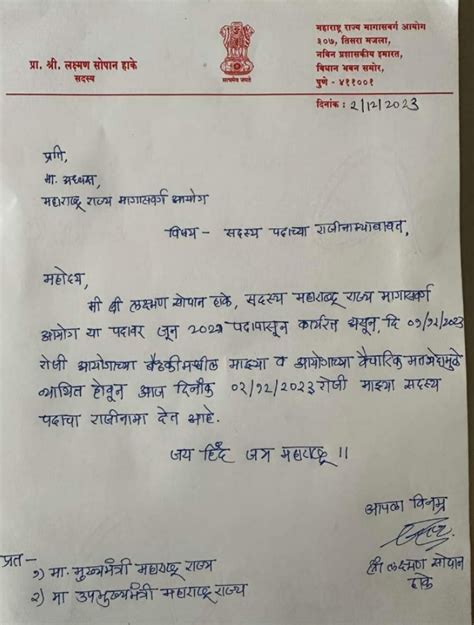 प्रा. श्री. लक्ष्मण सोपान हाके
सदस्य
सत्यमेव जयते
महाराष्ट्र राज्य मागासवर्ग आयोग
३०७, तिसरा मजला,
नविन प्रशासकीय इमारत,
विधान भवन समोर,
पुणे - ४११००१
दिनांक : २/12/2023
प्रति,
मा. अध्यक्ष,
महाराष्ट्र राज्य मागासवर्ग आयोग
विषय - सदस्य पदाच्या राजीनाम्याबाबत,
महोदय,
मी श्री लक्ष्मण सोपान हाके, सदस्य महाराष्ट्र राज्य मागासवर्ग
आयोग या पदावर जून २०२१ पदापासून कार्यरत असून दि ०१/१२/२०२३
रोजी आयोगाच्या बैठकीमधील माझ्या व आयोगाच्या वैचारिक मतभेदामुळे
व्यथित होवून आज दिनांक ०२/१२/२०२३ रोजी माझ्या सदस्य
पदाचा राजीनामा देत आहे.
जय हिंद जय महाराष्ट्र ||
आपला विनम्र
श्री लक्ष्मण सोपान
हाके
प्रत -
१) मा. मुख्यमंत्री महाराष्ट्र राज्य
२) मा उपमुख्यमंत्री महाराष्ट्र राज्य